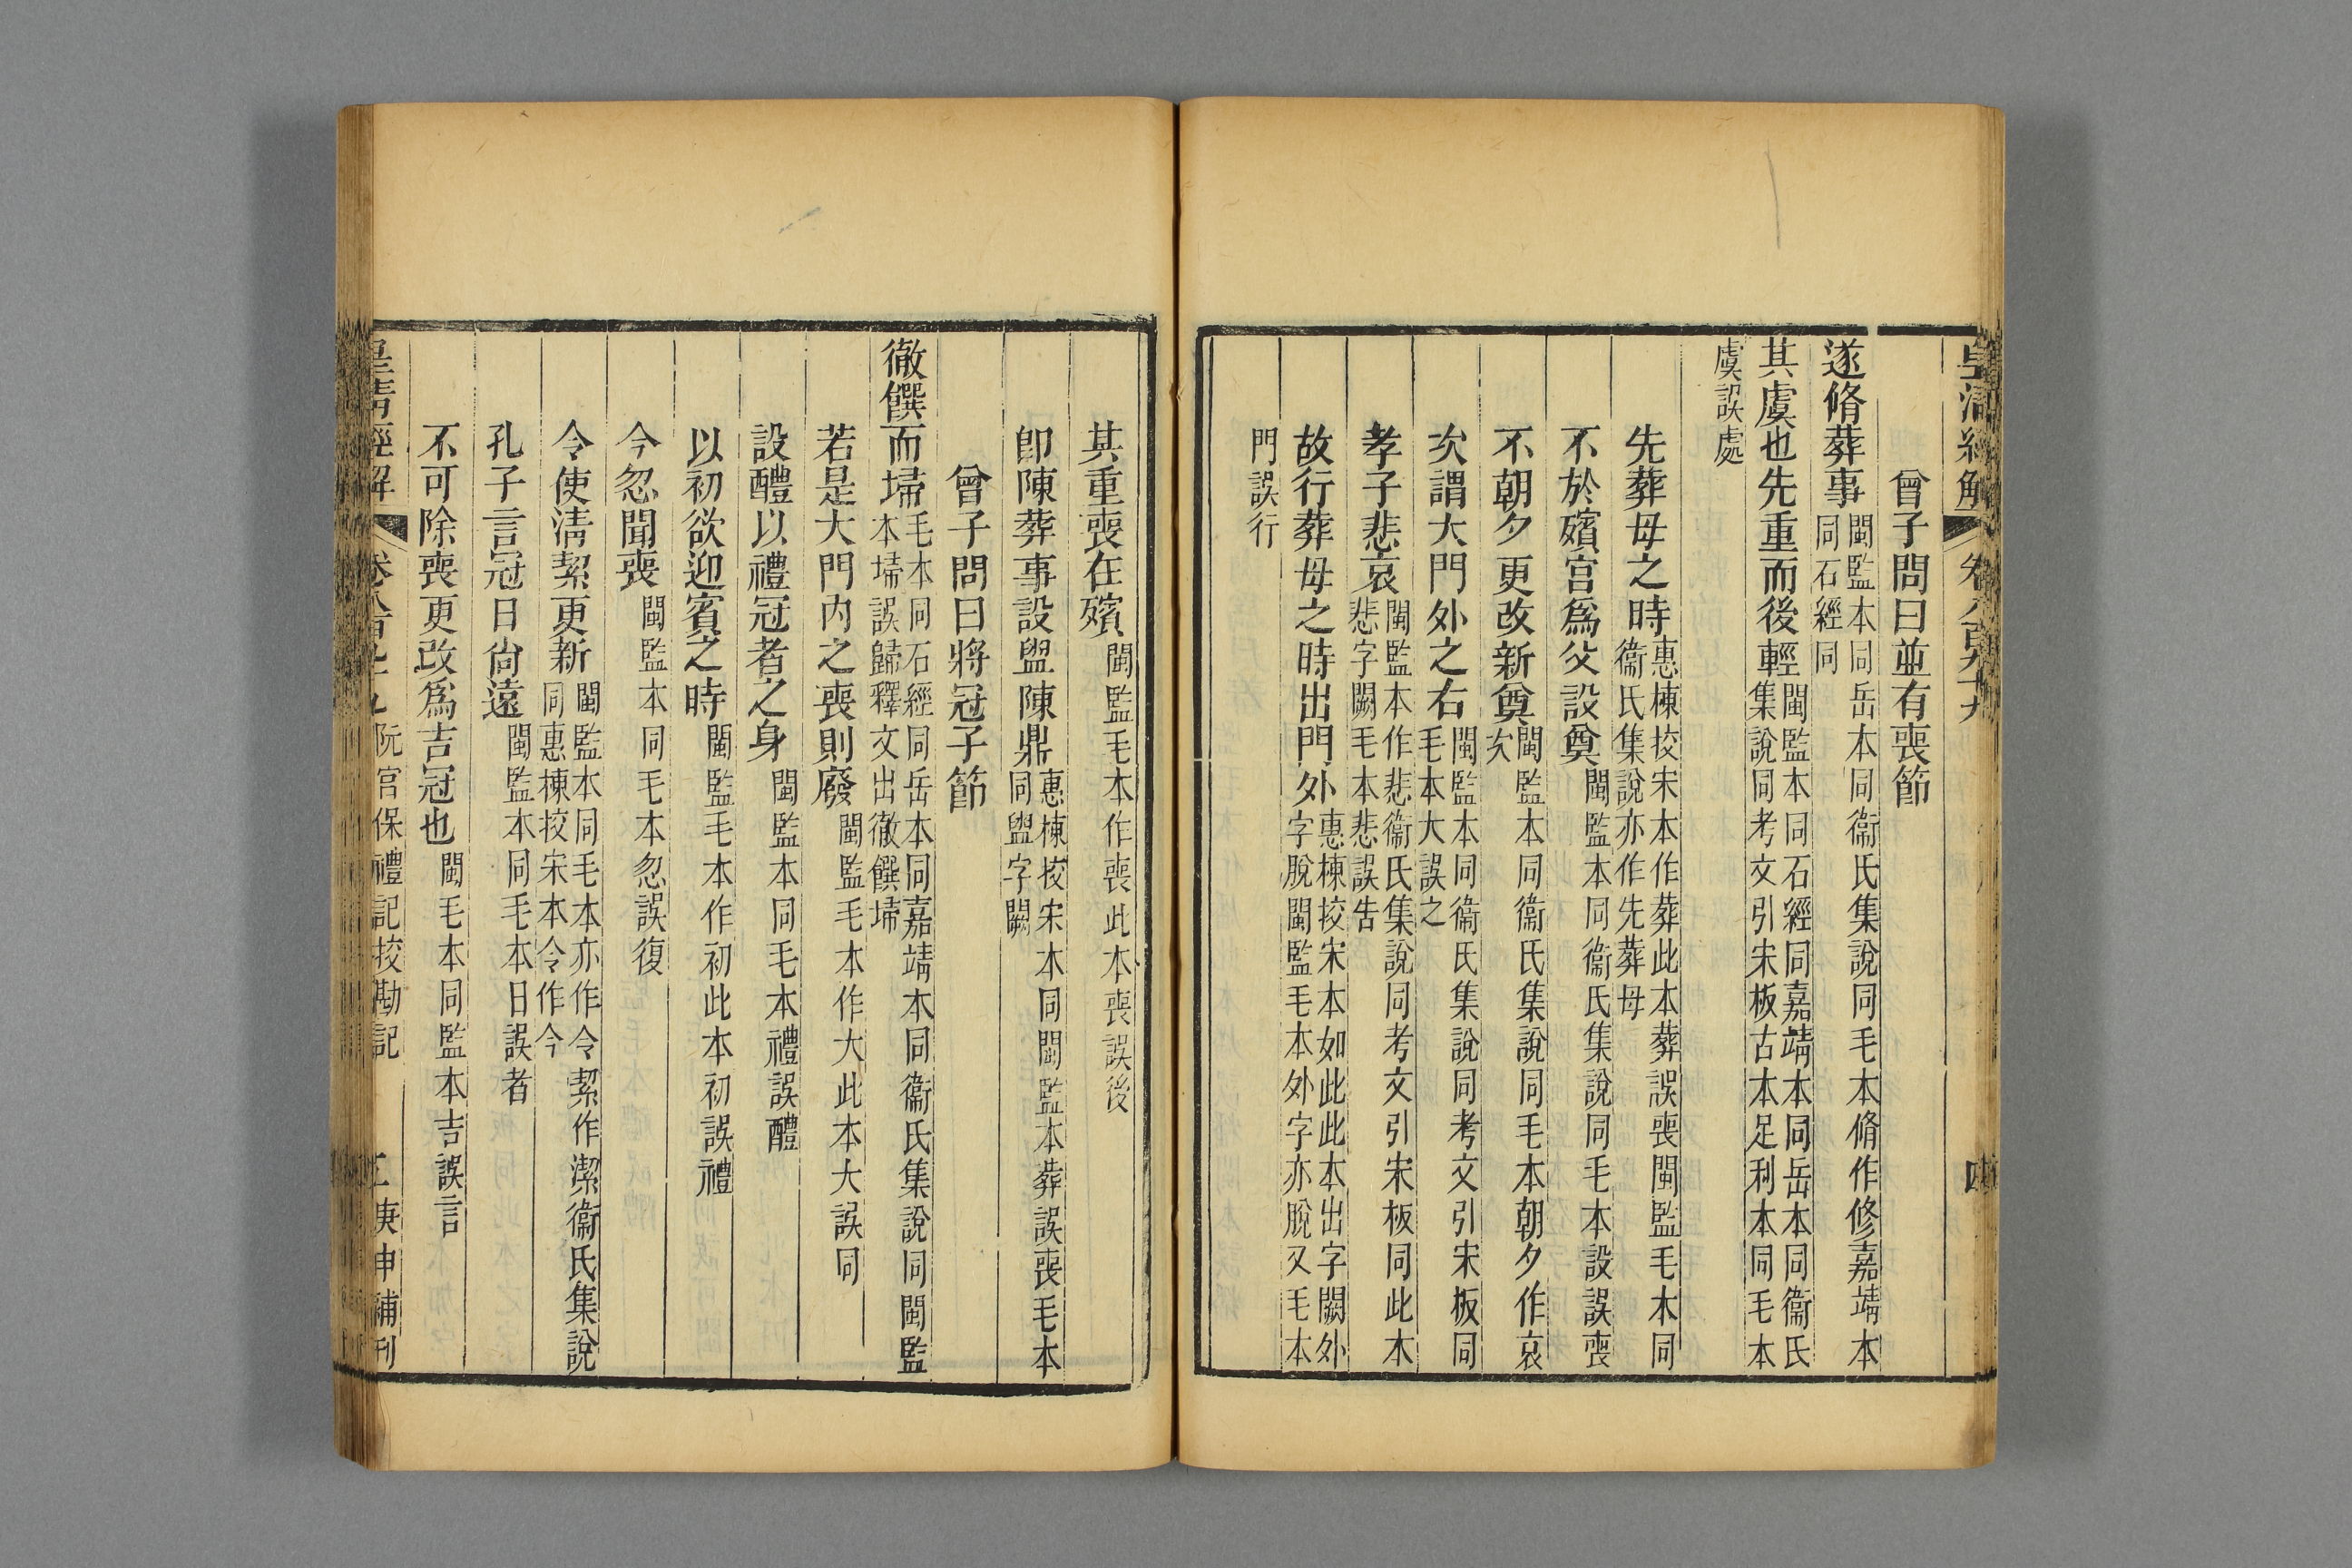 皇清經解 卷八百九十九 四
曾子問曰並有喪節
遂脩葬事閩監本同岳本同衞氏集說同毛本脩作修嘉靖本同石經同
其虞也先重而後輕閩監本同石經同嘉靖本同岳本同衞氏集說同考文引宋板古本足利本同毛本
虞誤處
先葬母之時惠棟挍宋本作葬此本葬誤喪閩監毛本同衞氏集說亦作先葬母
不於殯宮爲父設奠閩監本同衞氏集說同毛本設誤喪
不朝夕更改新奠閩監本同衞氏集說同毛本朝夕作哀次
次謂大門外之右閩監本同衞氏集說同考文引宋板同毛本大誤之
孝子悲哀閩監本作悲衞氏集說同考文引宋板同此本悲字闕毛本悲誤告
故行葬母之時出門外惠棟挍宋本如此此本出字闕外字脫閩監毛本外字亦脫又毛本
門誤行
其重喪在殯閩監毛本作喪此本喪誤後
卽陳葬事設盥陳鼎惠棟挍宋本同閩監本葬誤喪毛本同盥字闕
曾子問曰將冠子節
徹饌而埽毛本同石經同岳本同嘉靖本同衞氏集說同閩監本埽誤歸釋文出徹饌埽
若是大門内之喪則廢閩監毛本作大此本大誤同
設醴以禮冠者之身閩監本同毛本禮誤醴
以初欲迎賓之時閩監毛本作初此本初誤禮
今忽聞喪閩監本同毛本忽誤復
令使清絜更新閩監本同毛本亦作令絜作潔衞氏集說同惠棟挍宋本令作今
孔子言冠日尙遠閩監本同毛本日誤者
不可除喪更改爲吉冠也閩毛本同監本吉誤言
皇清經解 阮宮保禮記挍勘記 庚申補刊